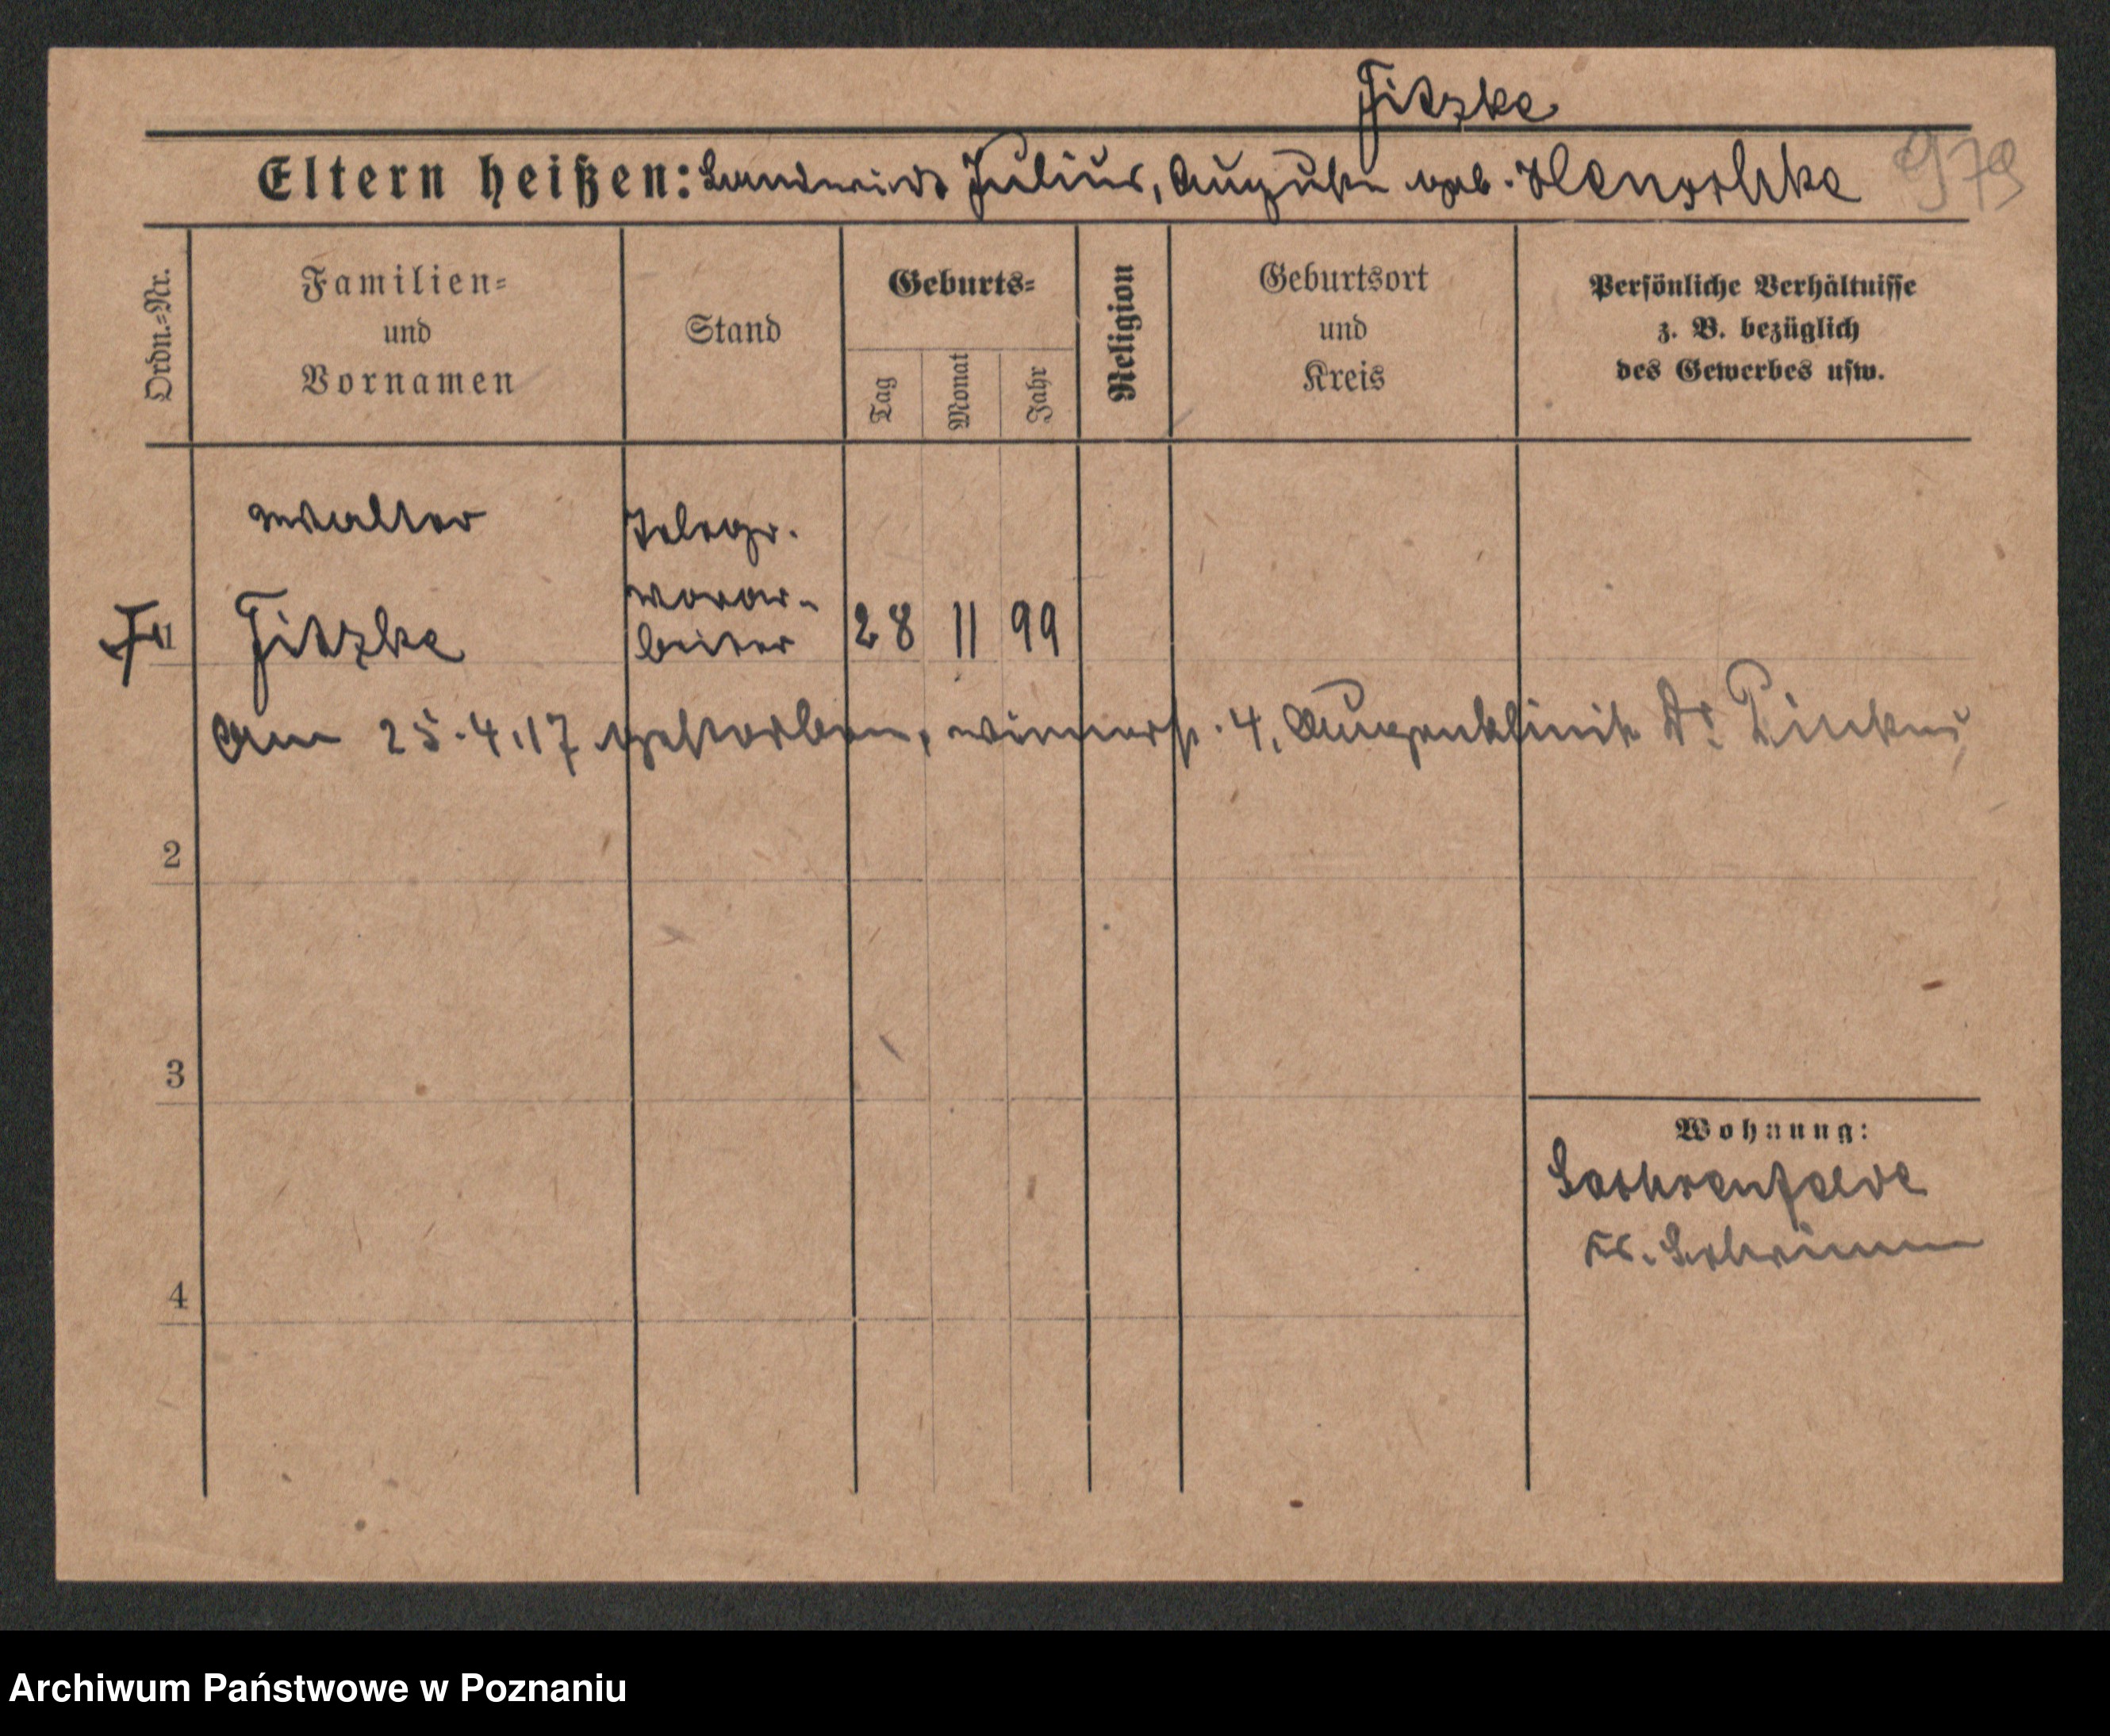 Fitzke
Eltern heißen: Landwirt Julius, Auguste geb. Henschke
979
Ordn.=Nr.
Familien=
und
Vornamen
Stand
Geburts=
Tag
Monat
Jahr
Religion
Geburtsort
und
Kreis
Persönliche Verhältnisse
z. B. bezüglich
des Gewerbes usw.
Walter
Telegr.
vorar-
1 Fitzke beiter 28 11 99
Am 25.4.17 gestorben, 4, Augenklinik Dr. Pinkus
2
3
Wohnung:
4
Kr. Schrimm
Archiwum Państwowe w Poznaniu